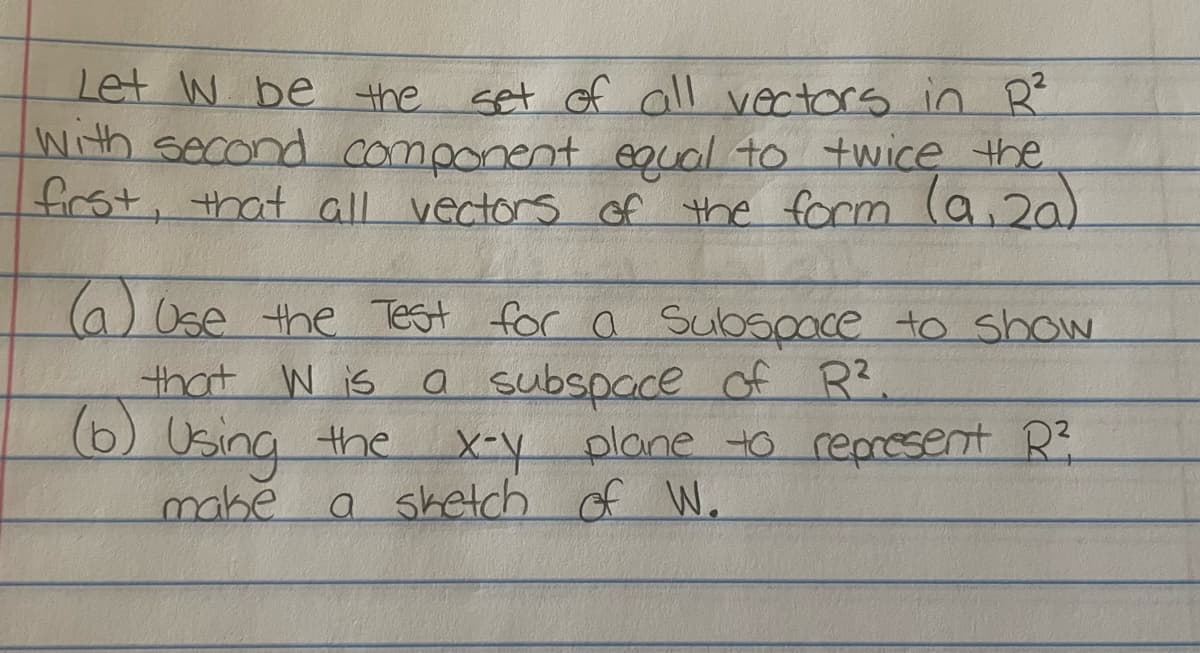 Let W be the set of all vectors in R²
With second component equal to twice the
first, that all vectors of the form (a, 2a)
(a) Use the Test for a Subspace to show
that W is a subspace of R².
(b) Using the x-y plane to represent R²,
make a sketch of W.